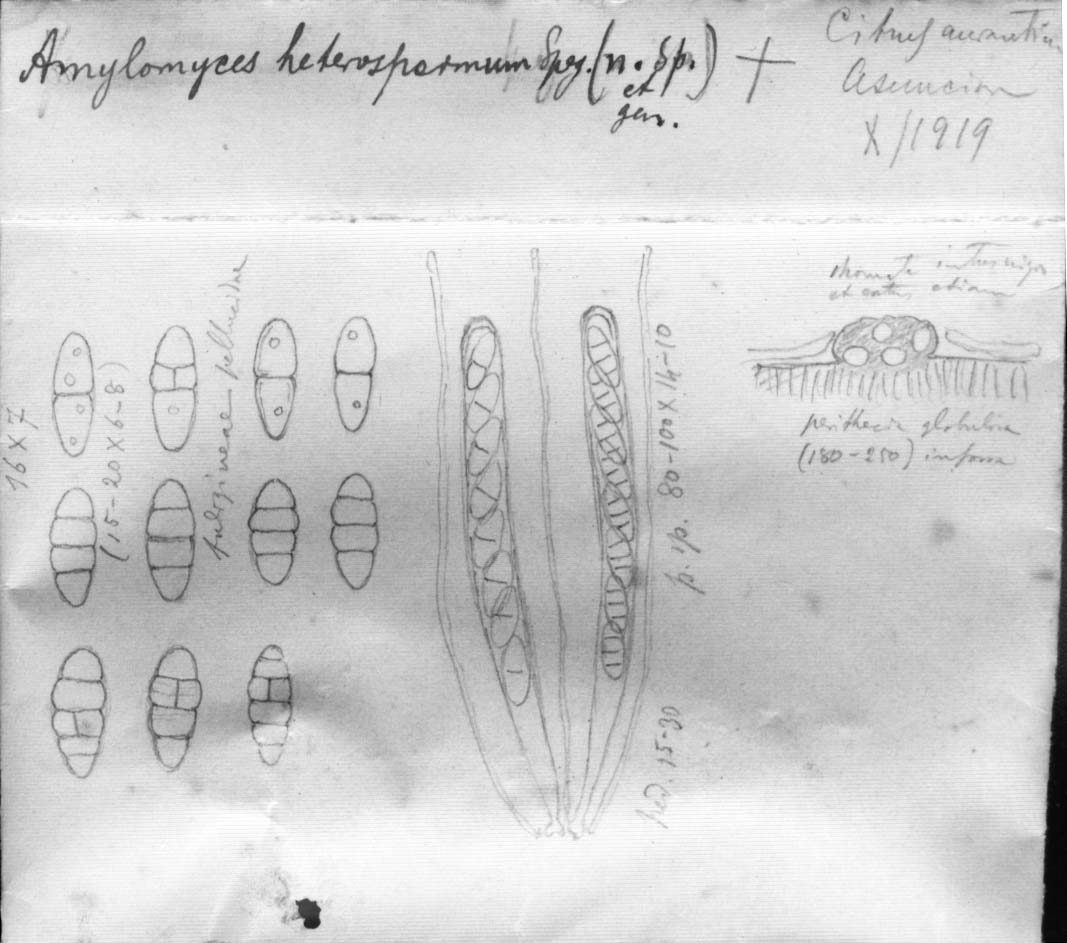 Amylomyces heterospermum Speg. (n. Sp.) +
et
gen.
Citrus aurantiu
Asuncion
X/1919
16 X 7
(15-20 X 6-8)
fuligineae pellucidae
p. sp. 80-100 X 14-10
ped. 15-30
intus
et extus etiam
perithecia globulosa
(180-250)